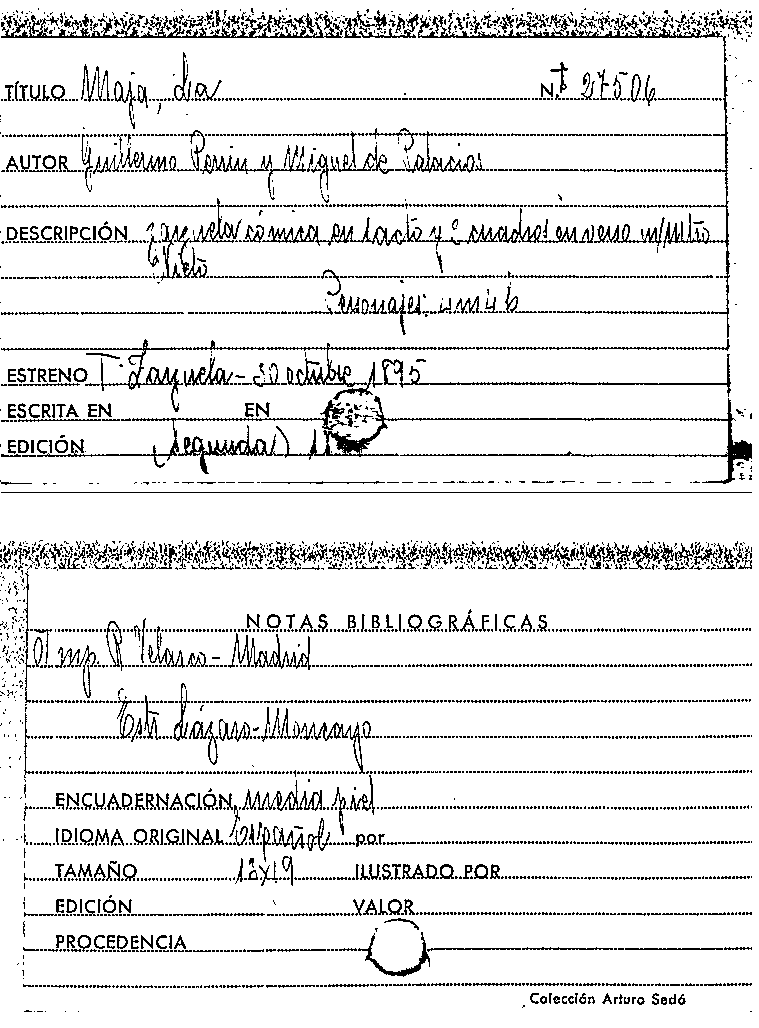 TÍTULO Maja, La N.º 27506
AUTOR Guillermo Perrin y Miguel de Palacios
DESCRIPCIÓN zarzuela cómica en 1 acto y cuadros en verso m/Mtro
Nieto
Personajes: 4m 4h
ESTRENO T. Zarzuela - 30 octubre 1895
ESCRITA EN EN
EDICIÓN (Segunda)
NOTAS BIBLIOGRÁFICAS
Imp R Velasco - Madrid
Estr Lázaro - Moncayo
ENCUADERNACIÓN media piel
IDIOMA ORIGINAL Español por
TAMAÑO 13x19 ILUSTRADO POR
EDICIÓN VALOR
PROCEDENCIA
Colección Arturo Sedó